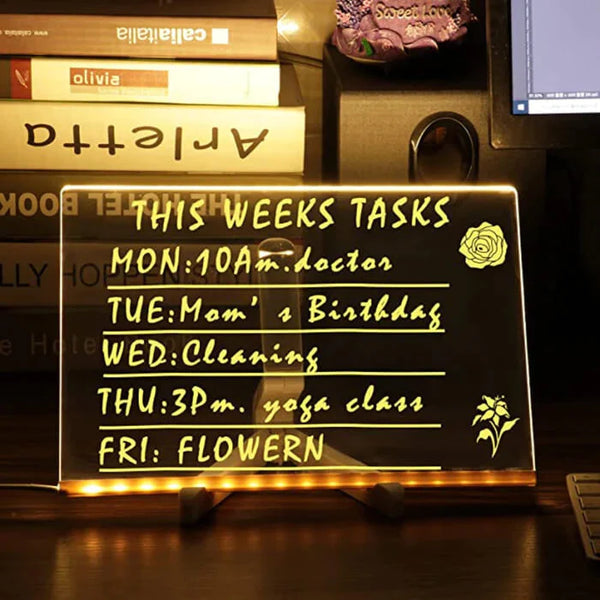 callaitalia
olivia
Arletta
THE HOTEL BOOK
LLY HOPPEN STYL
e Hote
Sweet Love
THIS WEEKS TASKS
MON:10Am.doctor
TUE:Mom's Birthday
WED:Cleaning
THU:3Pm. yoga class
FRI: FLOWERN